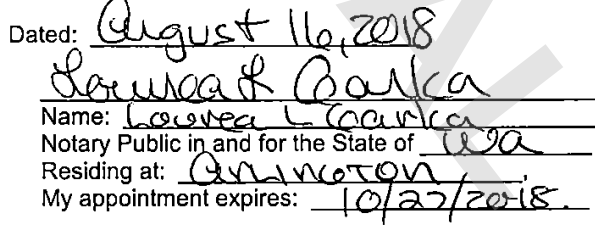 Dated: August 16, 2018
Name: Lourea L
Notary Public in and for the State of Wa
Residing at: Arlington
My appointment expires: 10/27/2018.